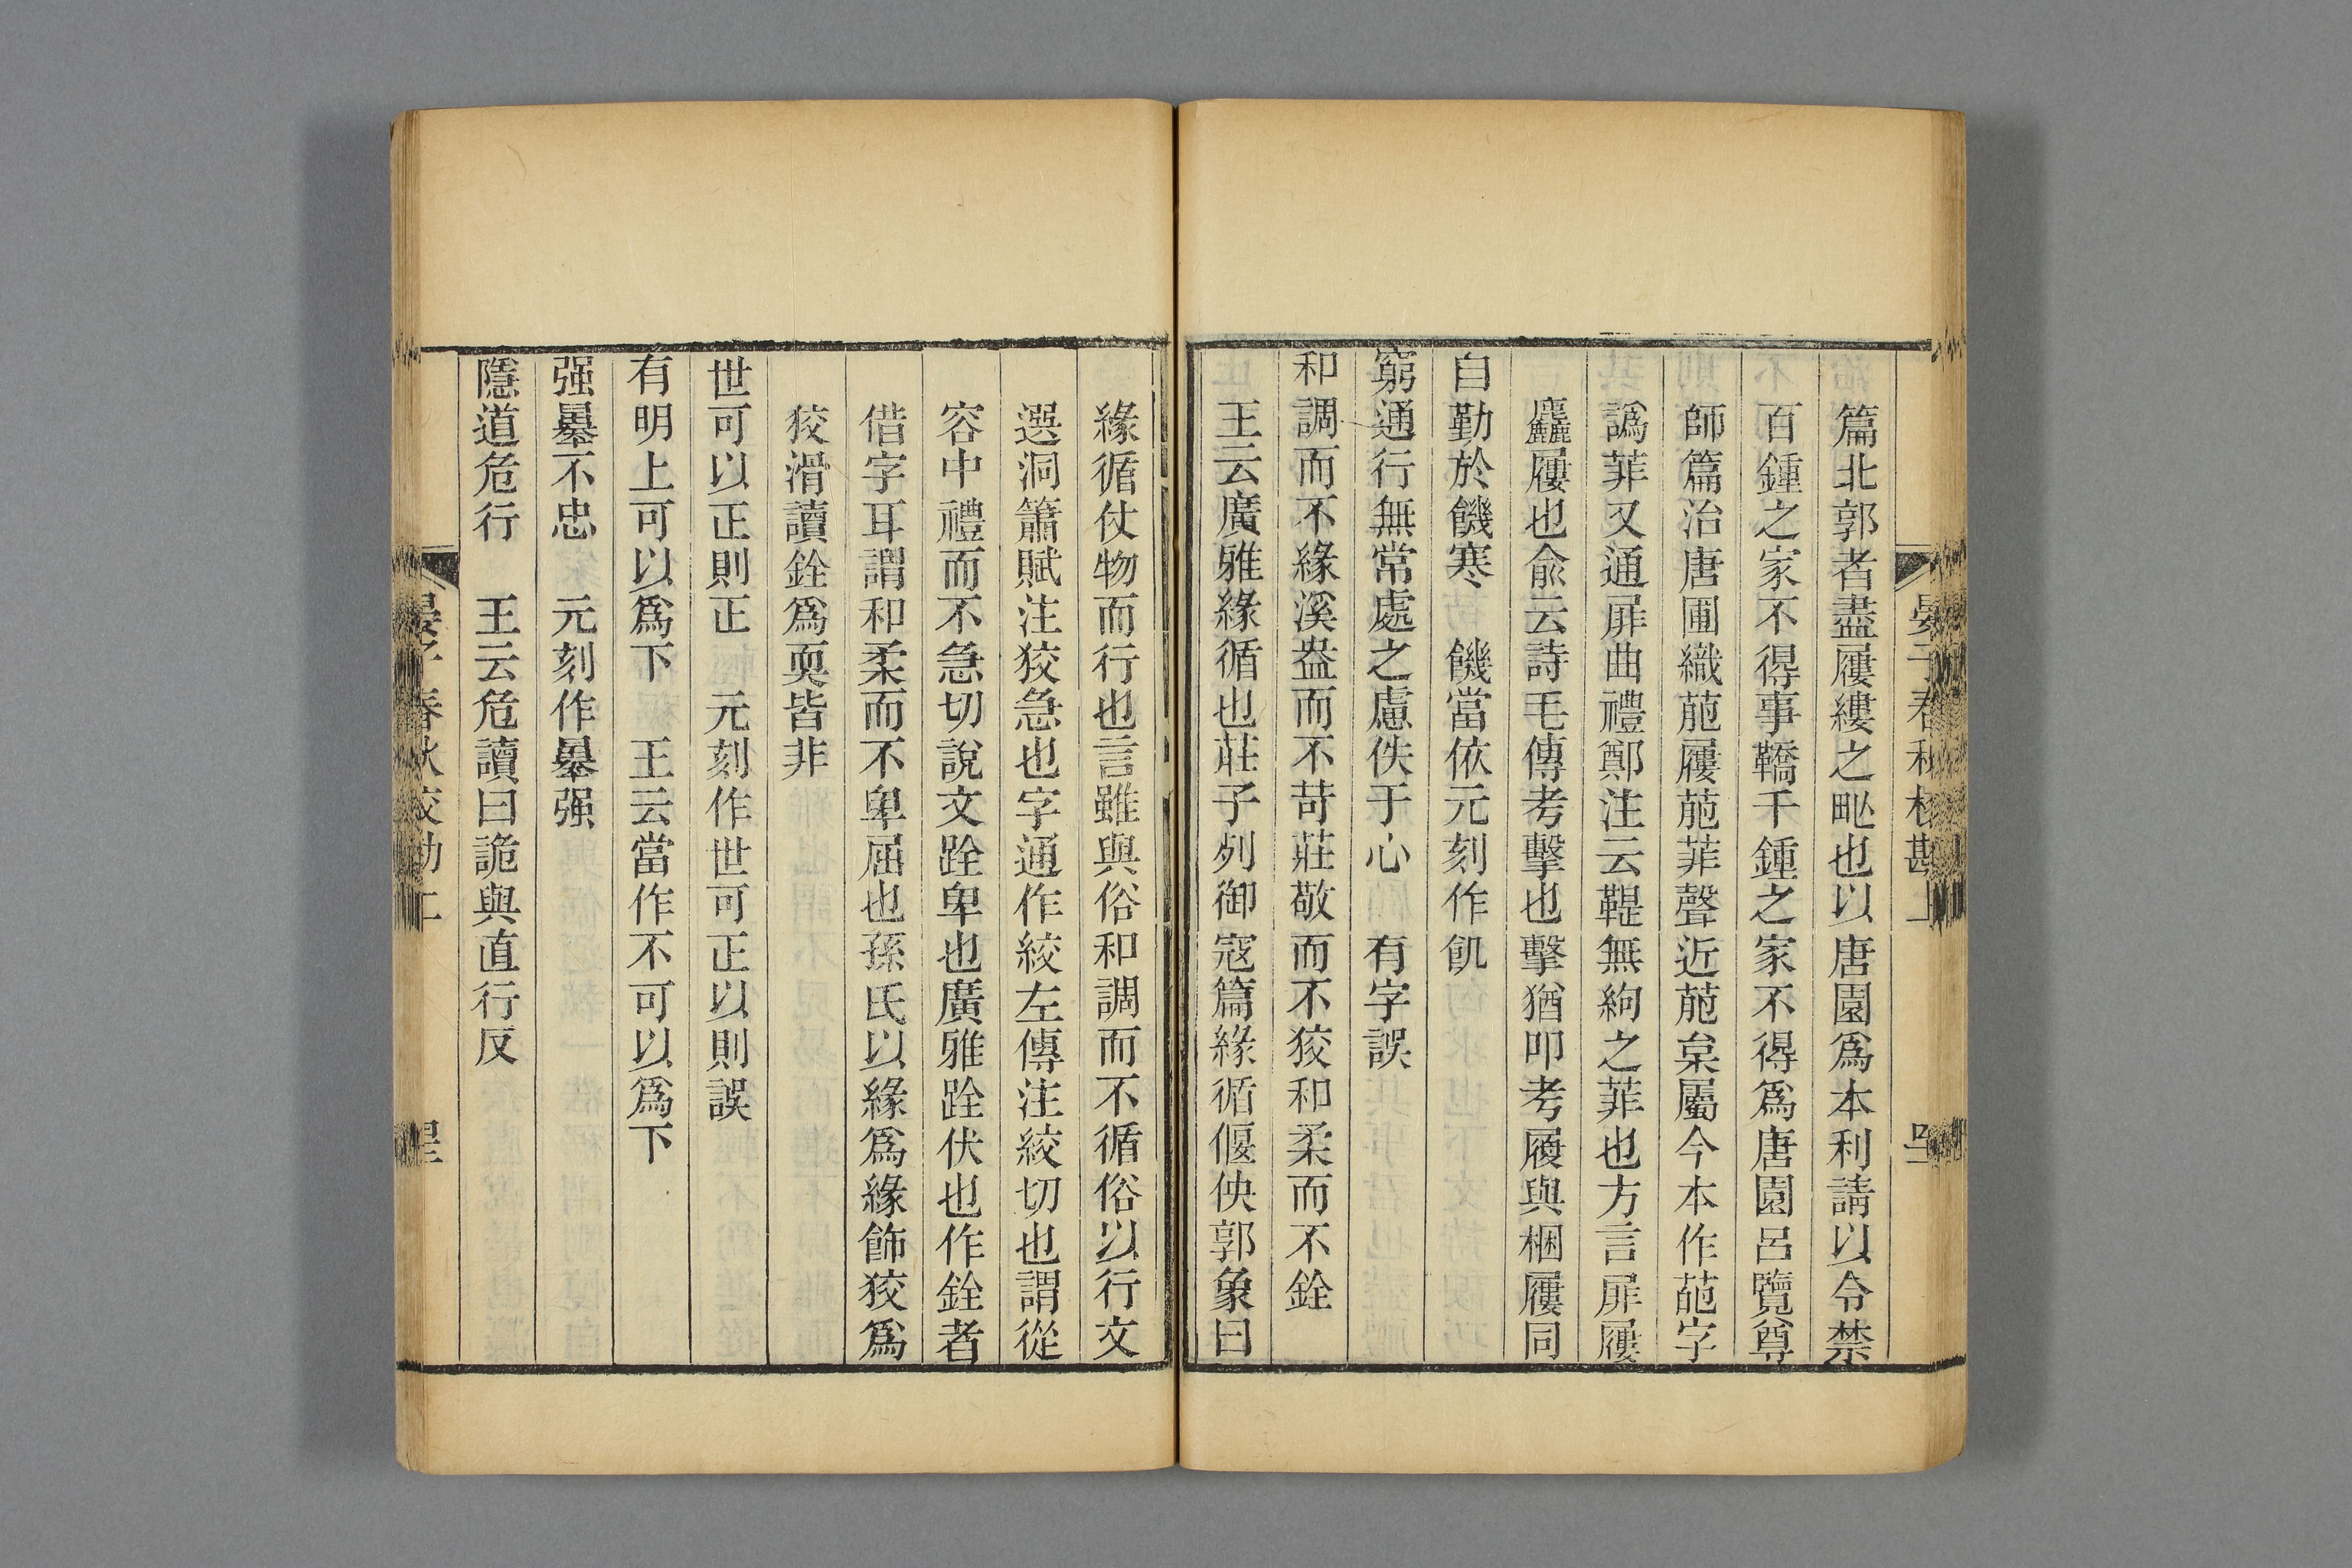 篇北郭者盡屨縷之甿也以唐園爲本利請以令禁
百鍾之家不得事鞽千鍾之家不得爲唐園呂覽尊
師篇治唐圃織萉屨萉菲聲近萉枲屬今本作葩字
譌菲又通屝曲禮鄭注云鞮無絇之菲也方言屝屨
麤屨也俞云詩毛傳考擊也擊猶叩考履與梱屨同
自勤於饑寒 饑當依元刻作飢
窮通行無常處之慮佚于心 有字誤
和調而不緣溪盎而不苛莊敬而不狡和柔而不銓
王云廣雅緣循也莊子列御寇篇緣循偃佒郭象曰
緣循仗物而行也言雖與俗和調而不循俗以行文
選洞簫賦注狡急也字通作絞左傳注絞切也謂從
容中禮而不急切說文跧卑也廣雅跧伏也作銓者
借字耳謂和柔而不卑屈也孫氏以緣爲緣飾狡爲
狡滑讀銓爲耎皆非
世可以正則正 元刻作世可正以則誤
有明上可以爲下 王云當作不可以爲下
强㬥不忠 元刻作㬥强
隱道危行 王云危讀曰詭與直行反
晏子春秋校勘上